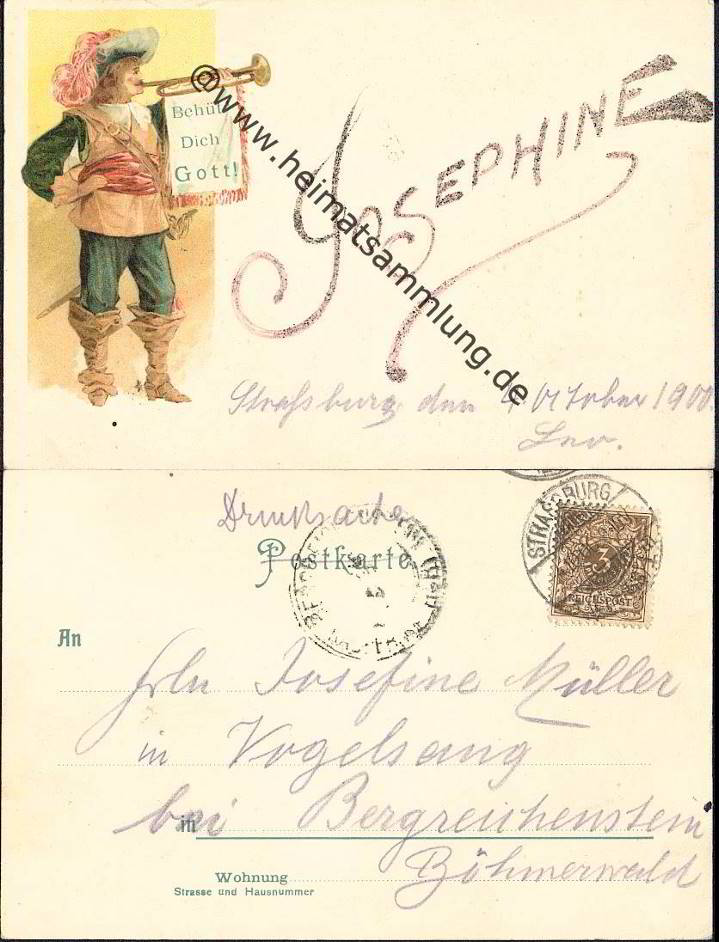 Behüt
Dich
Gott!
JOSEPHINE
@www.heimatsammlung.de
Strassburg den 4 October 1900.
Drucksache
Postkarte
STRASSBURG
3
REICHSPOST
An
Frln Josefine Müller
in Vogelsang
bei in Bergreichenstein
Böhmerwald
Wohnung
Strasse und Hausnummer